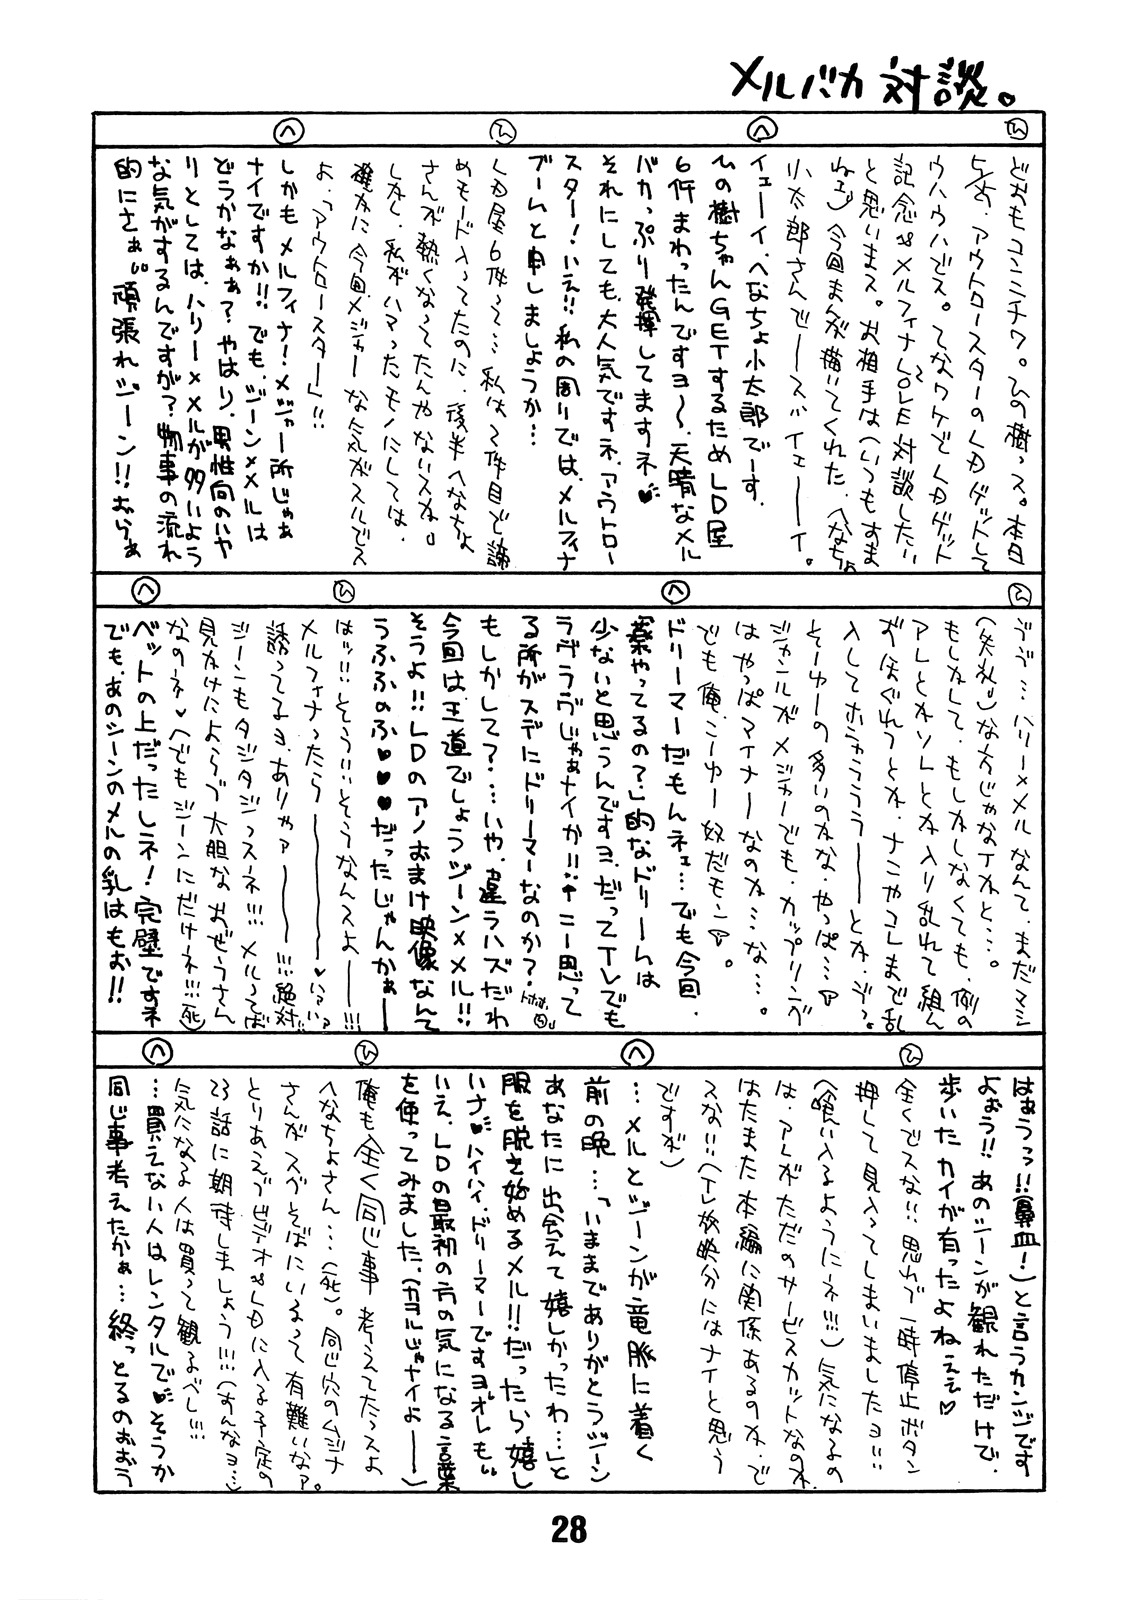 メルバカ対談。
ひ
どおもコンニチワ。ひの樹っス。本日
5/25、アウトロースターのLDゲットして
ウハウハでス。てなワケでLDゲット
記念&メルフィナLOVE対談したい
と思いまス。お相手は(いつもすま
ねェ)今回まんが描いてくれた、へなちょ
小太郎さんでーースバイェーーイ。
へ
イェーイ、へなちょ小太郎でーす。
ひの樹ちゃんGETするためLD屋
6件まわったんですヨ〜、天晴なメル
バカっぷり発揮してますネ♥
それにしても、大人気ですネ、アウトロー
スター!いえ!!私の周りでは、メルフィナ
ブームと申しましょうか…
ひ
LD屋6件って…私は2件目で諦
めモード入ってたのに、後半へなちょ
さんが熱くなってたんやないスかね。
しかし、私がハマったモノにしては、
確かに今回メジャーな気がスルでス
よ。「アウトロースター」!!
へ
しかもメルフィナ!メジャー所じゃぁ
ナイですか!!でも、ジーン×メルは
どうかなぁぁ?やはり、男性向のハヤ
リとしては、ハリー×メルが多いよう
な気がするんですが?物事の流れ
的にさぁ"頑張れジーン!!おらぁ
ひ
うう…ハリー×メルなんて、まだマシ
(失礼)な方じゃなイかと…。
もしかして、もしかしなくても、例の
アレとかソレとか入り乱れて組ん
ずほぐれつとか、ナニやコレまで乱
入してホニャうううーーとか、どっ。
そーゆーの多いのかな、やっぱ…
ジャンルがメジャーでも、カップリング
はやっぱマイナーなのか…な…。
でも俺、こーゆー奴だモン
へ
ドリーマーだもんネェ…でも今回、
「薬やってるの?」的なドリームは
少ないと思うんですヨ、だってTVでも
ラヴラヴじゃぁナイか!!←こー思って
る所がスデにドリーマーなのか?
もしかして?…いや、違うハズだわ
今回は王道でしょうジーン×メル!!
そうよ!!LDのアノおまけ映像なんて
うふふのふ♥♥♥だったじゃんかぁー
ひ
はッ!!そういいそうなんスよーー!!!
メルフィナったらーーー♥いぃぃ?
誘ってるヨ、ありゃァーーー!!!絶対!!
ジーンもタジタジっスネ!!!メルってば
見かけによらず大胆なおぜうさん
なのネ♥(でもジーンにだけネ!!!死)
へ
ベットの上だったしネ!完壁ですネ
でも、あのシーンのメルの乳はもぉ!!
はぁうっっ!!(鼻血!)と言うカンジです
よぉう!!あのシーンが観れただけで、
歩いたカイが有ったよねぇぇ♡
ひ
全くでスな!!思わず一時停止ボタン
押して見入ってしまいましたョ!!
(喰い入るようにネ!!!)気になるの
は、アレがただのサービスカットなのか、
はたまた本編に関係あるのか、で
スな!!(TV放映分にはナイと思う
ですが)
へ
…メルとジーンが竜脈に着く
前の晩…「いままでありがとうジーン
あなたに出会えて嬉しかったわ…」と
服を脱ぎ始めるメル!!だったら嬉し
いナ♥ハイハイ、ドリーマーですヨオレも"
いえ、LDの最初の方の気になる言葉
を使ってみました、(カヨルじゃナイよーー)
ひ
俺も全く同じ事考えてたっスよ
へなちょさん…(死)。同じ穴のムジナ
さんがスグそばにいるって有難いなァ。
とりあえずビデオ&LDに入る予定の
23話に期待しましょう!!!(すんなョ…)
気になる人は買って観るべし!!!
へ
…買えない人はレンタルで♥そうか
同じ事考えたかぁ…終っとるのおおう
28